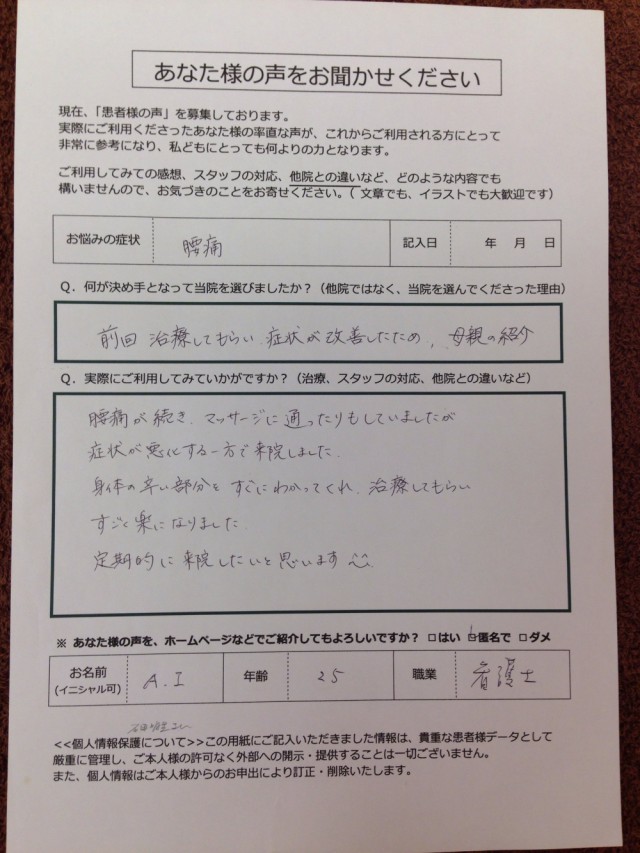 あなた様の声をお聞かせください
現在、「患者様の声」を募集しております。
実際にご利用くださったあなた様の率直な声が、これからご利用される方にとって
非常に参考になり、私どもにとっても何よりの力となります。
ご利用してみての感想、スタッフの対応、他院との違いなど、どのような内容でも
構いませんので、お気づきのことをお寄せください。（ 文章でも、イラストでも大歓迎です）
お悩みの症状 腰痛 記入日 年 月 日
Q．何が決め手となって当院を選びましたか？（他院ではなく、当院を選んでくださった理由）
前回 治療してもらい、症状が改善したため , 母親の紹介
Q．実際にご利用してみていかがですか？（治療、スタッフの対応、他院との違いなど）
腰痛が続き、マッサージに通ったりもしていましたが
症状が悪化する一方で来院しました。
身体の辛い部分をすぐにわかってくれ、治療してもらい
すごく楽になりました
定期的に来院したいと思います
※ あなた様の声を、ホームページなどでご紹介してもよろしいですか？ □はい □匿名で □ダメ
お名前 A.I 年齢 25 職業 看護士
(イニシャル可)
<<個人情報保護について>>この用紙にご記入いただきました情報は、貴重な患者様データとして
厳重に管理し、ご本人様の許可なく外部への開示・提供することは一切ございません。
また、個人情報はご本人様からのお申出により訂正・削除いたします。